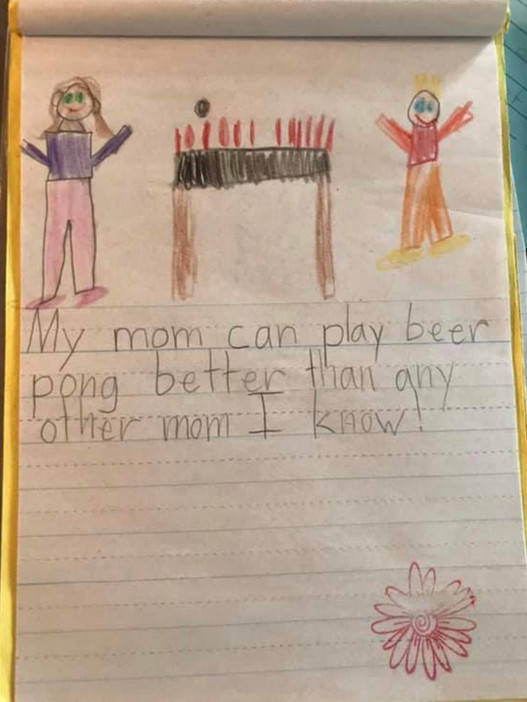 My mom can play beer
pong better than any
other mom I know!